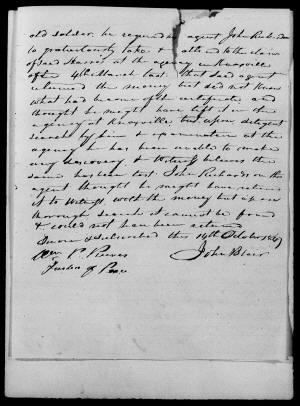 old soldier. he required agent John Richardson
to gratuitously take & attend to the claim
of said Harris at the agency in Knoxville
after 4th March last. that said agent
returned the money but did not know
what had become of the certificate and
thought he might have left it in the
agency at Knoxville but upon diligent
search by him & examination at the
agency he has been unable to make
any discovery & Witness believes the
same has been lost. John Richardson the
agent thought he might have returned
it to Witness with the money but upon
thorough search it cannot be found
& could not have been returned
Sworn & subscribed this 14th October 184
Wm P. Reeves John Blair
Justice of Peace